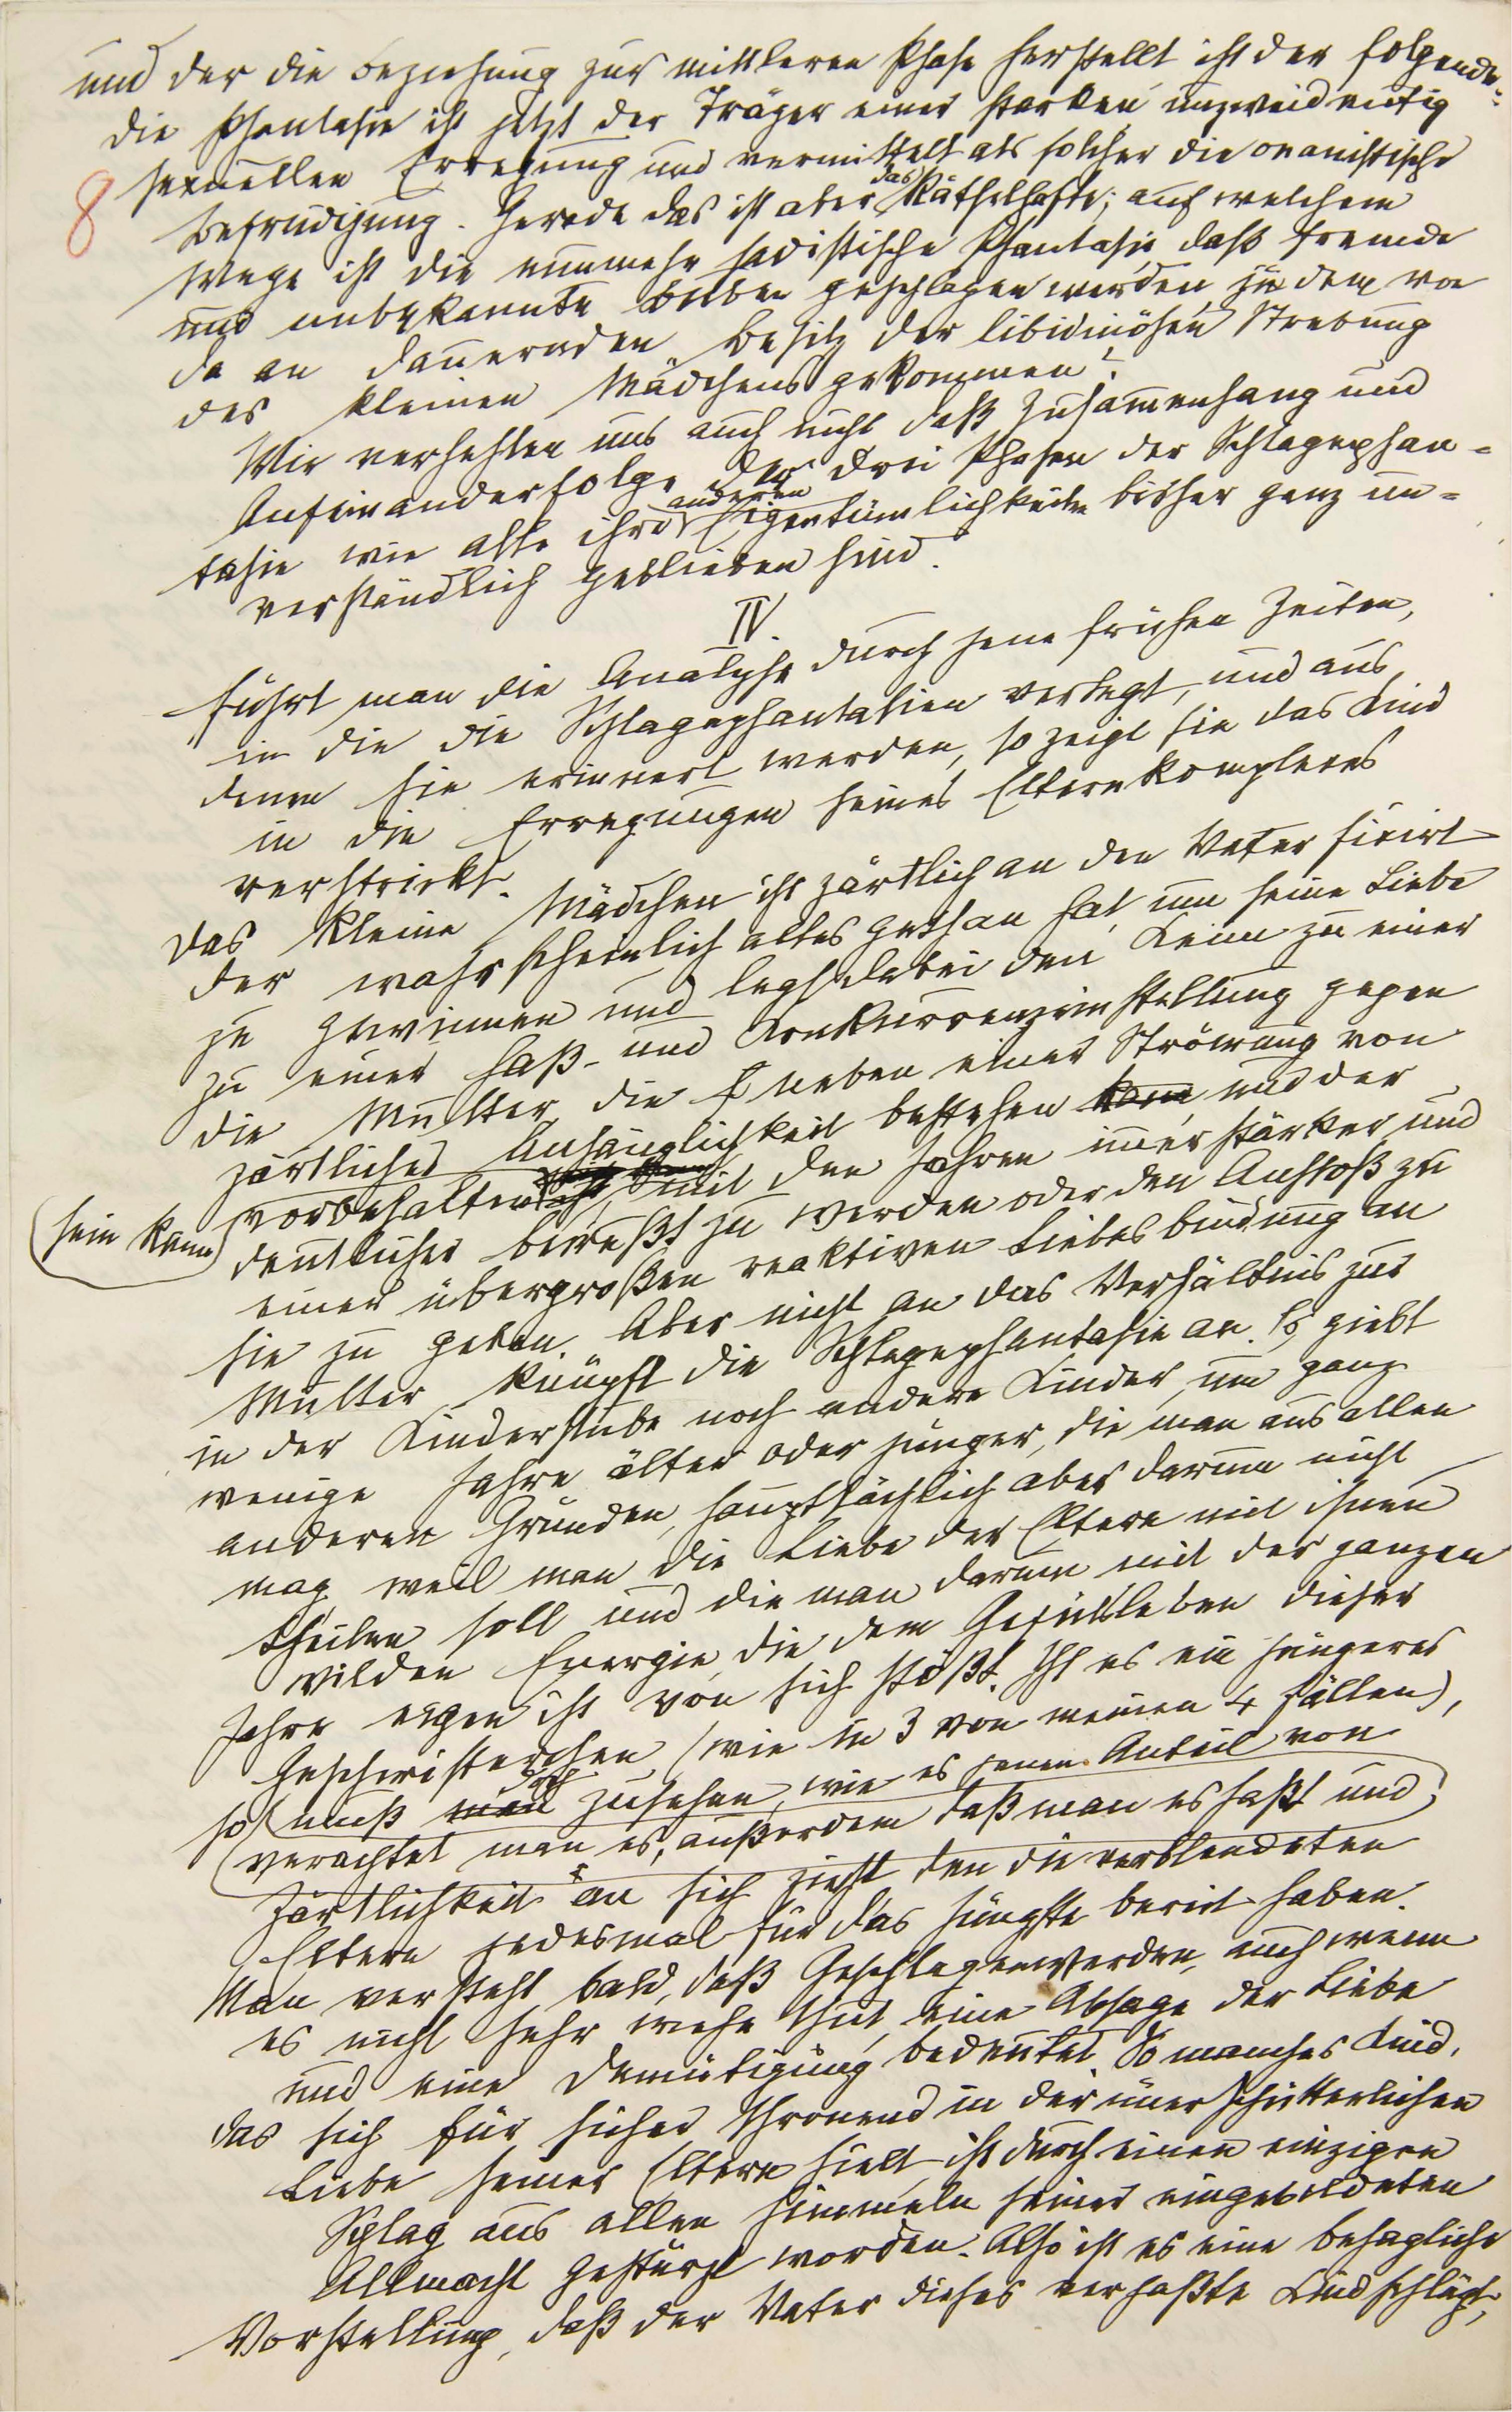 und der die Beziehung zur mittleren Phase herstellt ist der folgende:
die Phantasie ist jetzt der Träger einer starken unzweideutig
sexuellen Erregung und vermittelt als solcher die onanistische
8
Befriedigung. Gerade das ist aber das Räthselhafte; auf welchem
Wege ist die nunmehr sadistische Phantasie daß fremde
und unbekannte Buben geschlagen werden, zu dem von
da an dauernden Besitz der libidinösen Strebung
des kleinen Mädchens gekommen?
Wir verhehlen uns auch nicht daß Zusammenhang und
Aufeinanderfolge der drei Phasen der Schlagephan-
tasie wie alle ihre anderen Eigentümlichkeiten bisher ganz un-
verständlich geblieben sind.
IV.
Führt man die Analyse durch jene frühen Zeiten,
in die die Schlagephantasien verlegt, und aus
denen sie erinnert werden, so zeigt sie das Kind
in die Erregungen seines Elternkomplexes
verstrickt.
Das kleine Mädchen ist zärtlich an den Vater fixirt
der wahrscheinlich alles gethan hat um seine Liebe
zu gewinnen und legt dabei den Keim zu einer
zu einer Haß- und Konkurrenzeinstellung gegen
die Mutter, die neben einer Strömung von
zärtlicher Anhänglichkeit bestehen kann und der
vorbehalten ist, mit den Jahren imer stärker und
(sein kann) deutlicher bewußt zu werden oder den Anstoß zu
einer übergroßen reaktiven Liebesbindung an
sie zu geben. Aber nicht an das Verhältnis zur
Mutter knüpft die Schlagephantasie an. Es giebt
in der Kinderstube noch andere Kinder, um ganz
wenige Jahre älter oder jünger, die man aus allen
anderen Gründen, hauptsächlich aber darum nicht
mag, weil man die Liebe der Eltern mit ihnen
theilen soll und die man darum mit der ganzen
wilden Energie, die dem Gefühlsleben dieser
Jahre eigen ist von sich stößt. Ist es ein jüngeres
Geschwisterchen, (wie in 3 von meinen 4 Fällen),
so muß man doch zusehen, wie es jenen Anteil von
(verachtet man es, außerdem daß man es haßt und)
Zärtlichkeit an sich zieht den die verblendeten
Eltern jedesmal für das jüngste bereit haben.
Man versteht bald, daß Geschlagenwerden, auch wenn
es nicht sehr wehe thut, eine Absage der Liebe
und eine Demütigung bedeutet. So manches Kind,
das sich für sicher thronend in der unerschütterlichen
Liebe seiner Eltern hielt, ist durch einen einzigen
Schlag aus allen Himmeln seiner eingebildeten
Allmacht gestürzt worden. Also ist es eine behagliche
Vorstellung, daß der Vater dieses verhaßte Kind schlägt,